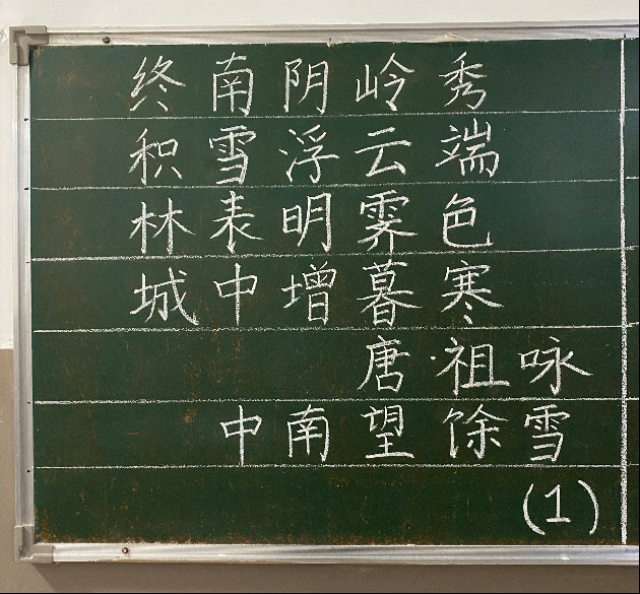 终南阴岭秀
积雪浮云端
林表明霁色
城中增暮寒
唐·祖咏
中南望馀雪
(1)